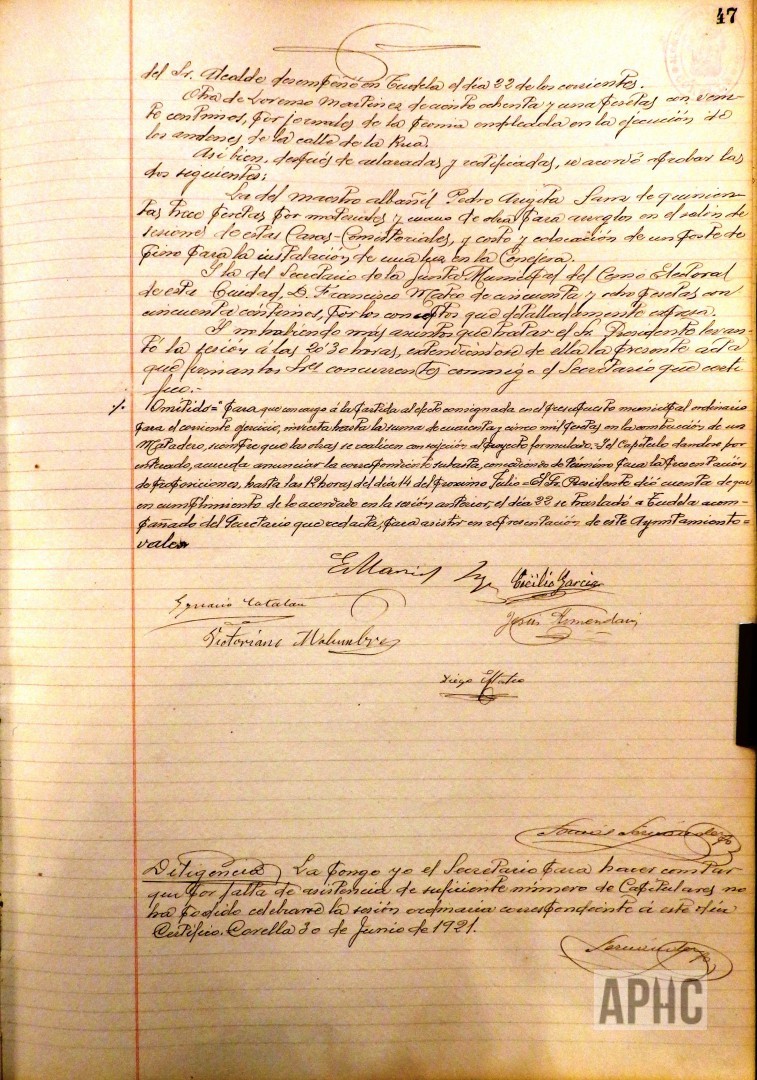 47
del Sr. Alcalde desempeñó en Tudela el día 22 de los corrientes.
Otra de Lorenzo Martínez de ciento ochenta y una pesetas con vein-
te centimos, por jornales de la peonía empleada en la ejecución de
los andenes de la calle de la Rua.
Asi bien, después de aclaradas y rectificadas, se acordó aprobar las
dos siguientes:
La del maestro albañil Pedro Sanz de quinien-
tas trece pesetas por materiales y mano de obra para arreglos en el salón de
sesiones de estas Casas-Consistoriales, y costo y colocación de un poste de
pino para la instalación de una luz en la
Y la del Secretario de la Junta Municipal del Censo Electoral
de esta Ciudad, D. Francisco Mateo de cincuenta y ocho pesetas con
cincuenta centimos, por los conceptos que detalladamente expresa.
Y no habiendo más asuntos que tratar el Sr. Presidente levan-
tó la sesión á las 20'30 horas, extendiéndose de ella la presente acta
que firman los Sres concurrentes conmigo el Secretario que certi-
fico.-
Omitido="para que con cargo á la partida al efecto consignada en el presupuesto municipal ordinario
para el corriente ejercicio, invierta hasta la suma de cuarenta y cinco mil pesetas en la construcción de un
Matadero, siempre que las obras se realicen con sujeción al proyecto formulado. Y el Capítulo dandose por
enterado, acuerda anunciar la correspondiente subasta, concediendo de término para la presentación
de proposiciones, hasta las 12 horas del día 14 del proximo Julio=El Sr. Presidente dió cuenta de que
en cumplimiento de lo acordado en la sesión anterior, el día 22 se trasladó a Tudela acom-
pañado del Secretario que redacta, para asistir en representación de este Ayuntamiento=
vale=
Cecilio Garcia
Ignacio Catalan
Jesús Armendariz
Victoriano Malumbres
Diego Mateo
Diligencia La pongo yo el Secretario para hacer constar
que por falta de asistencia de suficiente número de Capitulares no
ha podido celebrarse la sesión ordinaria correspondiente á este día
Certifico. Corella 30 de Junio de 1921.
APHC